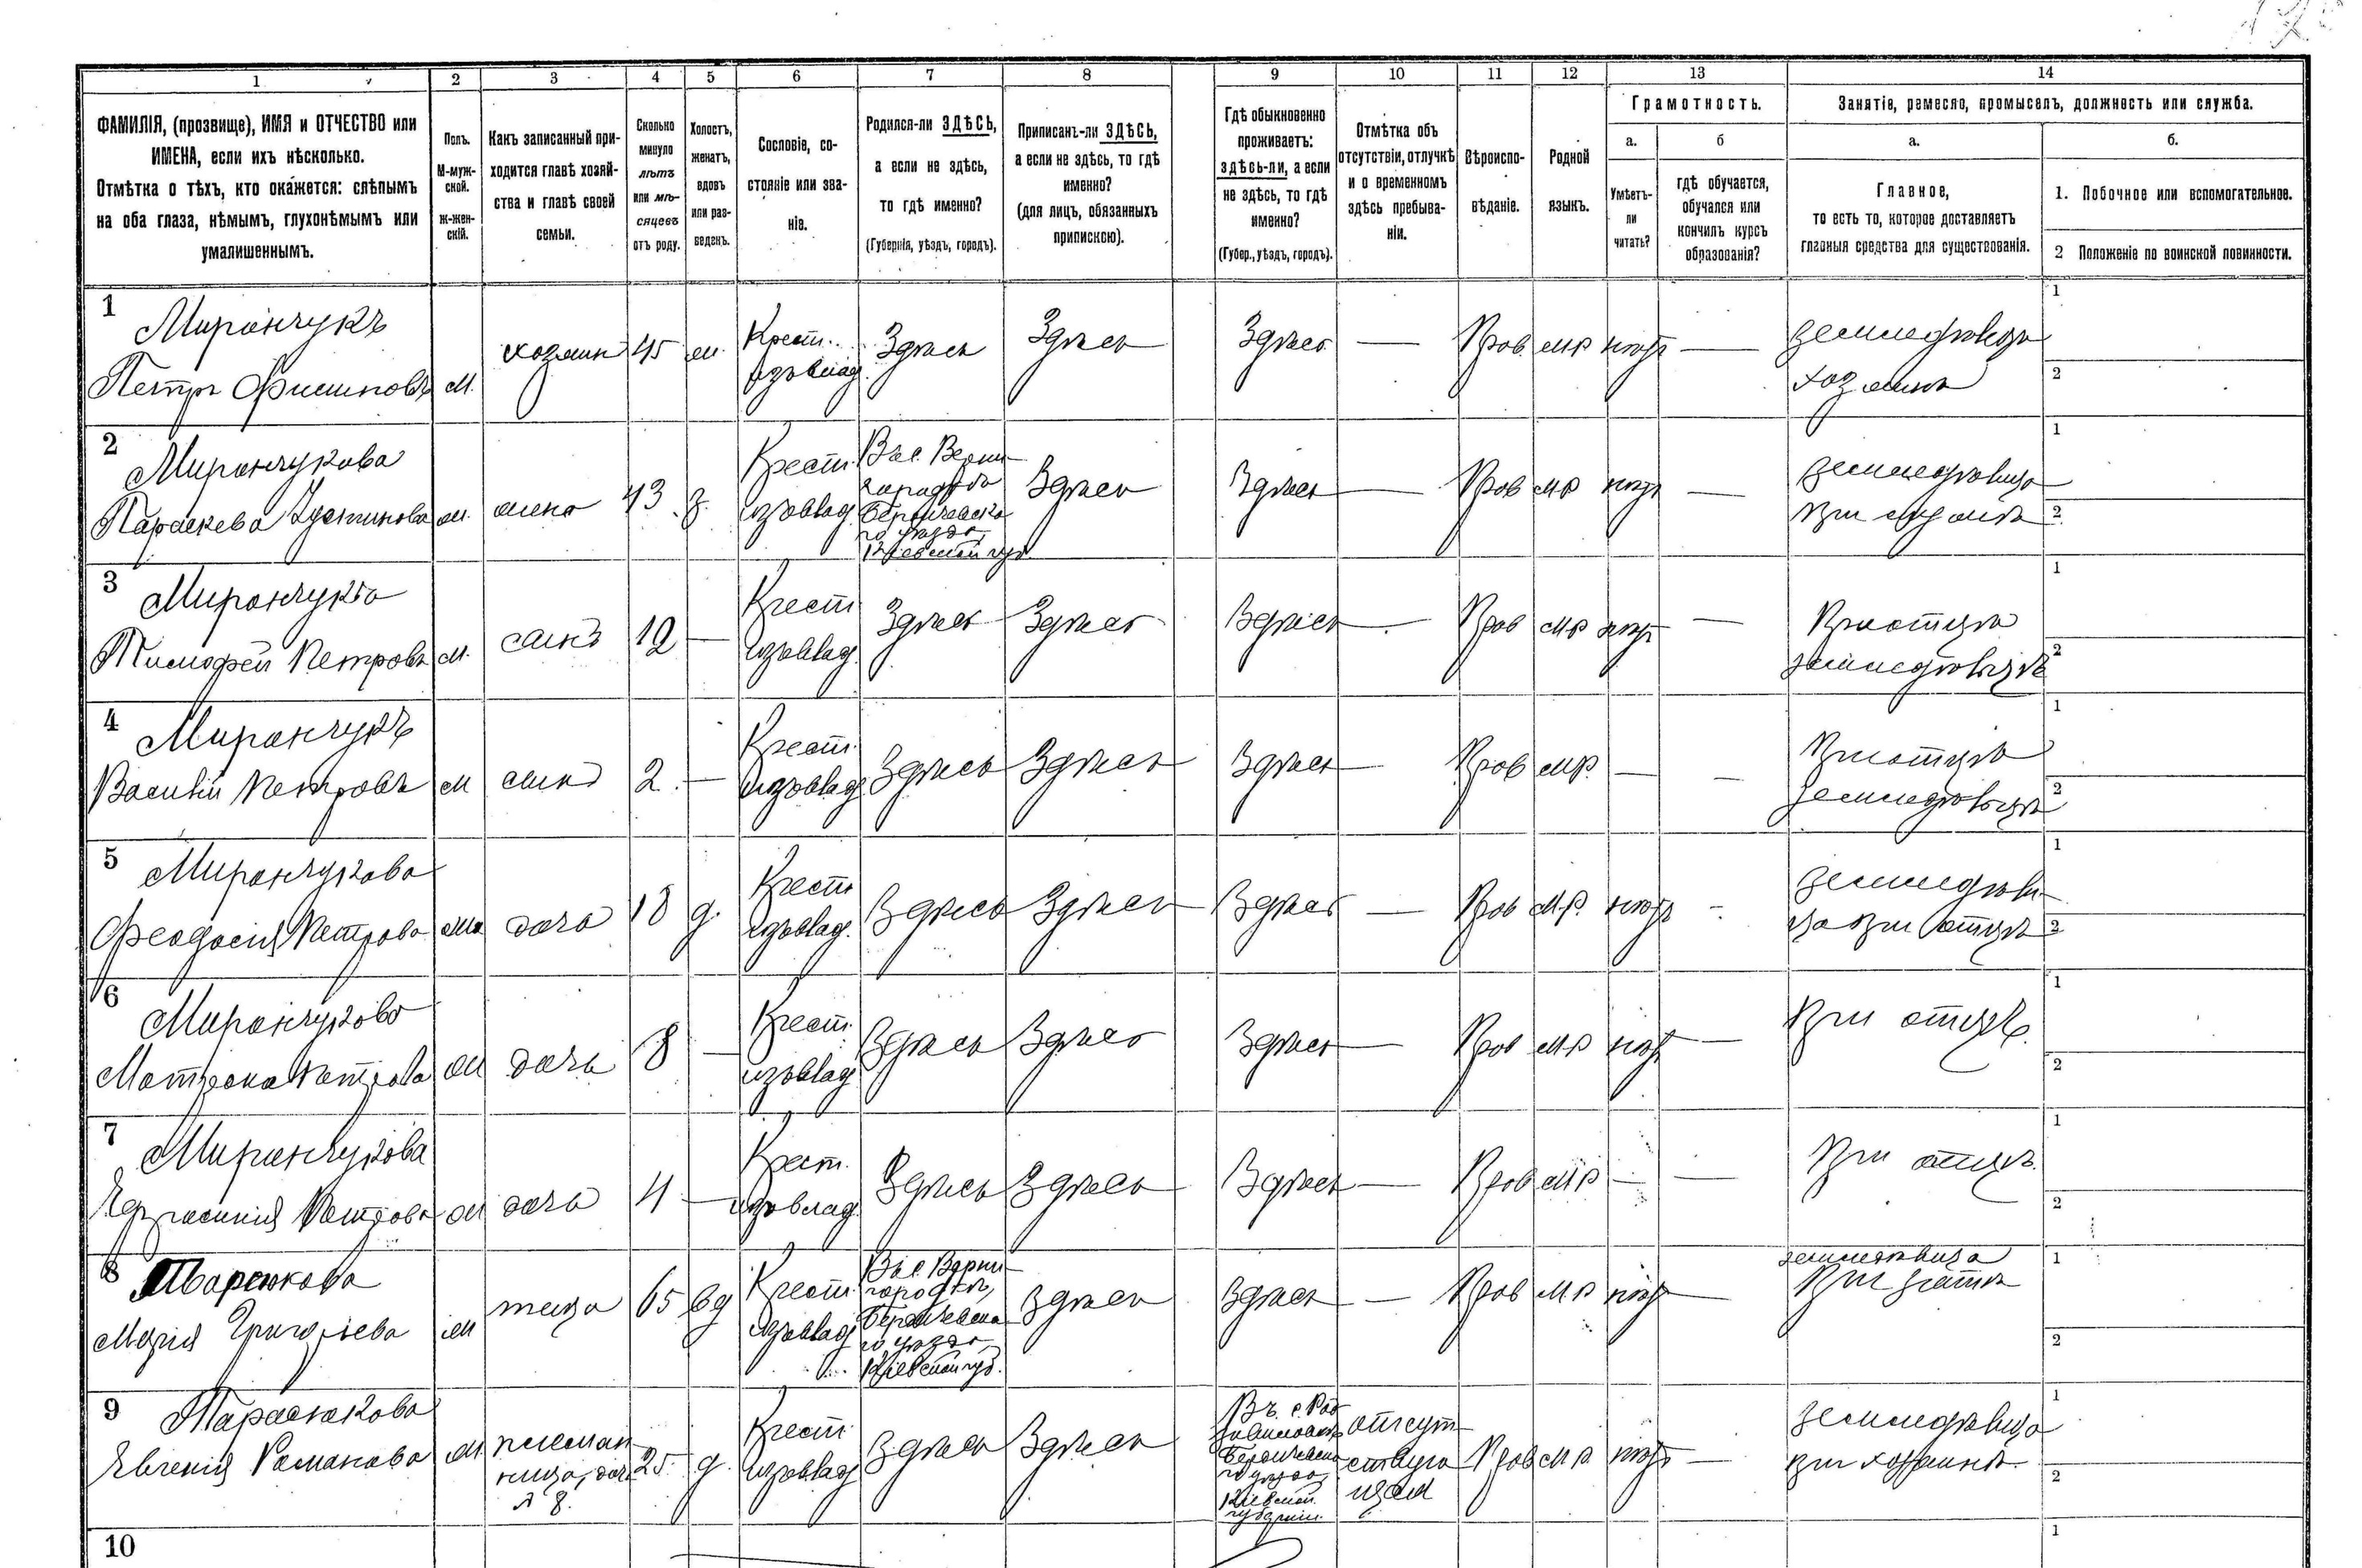 1 2 3 4 5 6 7 8 9 10 11 12 13 14
ФАМИЛІЯ, (прозвище), ИМЯ и ОТЧЕСТВО или
ИМЕНА, если ихъ нѣсколько.
Отмѣтка о тѣхъ, кто окажется: слѣпымъ
на оба глаза, нѣмымъ, глухонѣмымъ или
умалишеннымъ.
Полъ.
М-муж-
ской.
Ж-жен-
скій.
Какъ записанный при-
ходится главѣ хозяй-
ства и главѣ своей
семьи.
Сколько
минуло
лѣтъ
или мѣ-
сяцевъ
отъ роду.
Холостъ,
женатъ,
вдовъ
или раз-
веденъ.
Сословіе, со-
стояніе или зва-
ніе.
Родился-ли ЗДѢСЬ,
а если не здѣсь,
то гдѣ именно?
(Губернія, уѣздъ, городъ).
Приписанъ-ли ЗДѢСЬ,
а если не здѣсь, то гдѣ
именно?
(для лицъ, обязанныхъ
припискою).
Гдѣ обыкновенно
проживаетъ:
здѣсь-ли, а если
не здѣсь, то гдѣ
именно?
(Губер., уѣздъ, городъ).
Отмѣтка объ
отсутствіи, отлучкѣ
и о временномъ
здѣсь пребыва-
ніи.
Вѣроиспо-
вѣданіе.
Родной
языкъ.
Грамотность.
а.
Умѣетъ-
ли
читать?
б
гдѣ обучается,
обучался или
кончилъ курсъ
образованія?
Занятіе, ремесло, промыселъ, должность или служба.
а.
Главное,
то есть то, которое доставляетъ
главныя средства для существованія.
б.
1. Побочное или вспомогательное.
2 Положеніе по воинской повинности.
1
Мирончукъ
Петръ Филиповъ
м.
хозяинъ
45
ж.
Крест.
изъ влад.
Здѣсь
Здѣсь
Здѣсь
—
Прав
мр
нѣтъ
—
земледѣлецъ
хозяинъ
1
2
2
Мирончукова
Параскева Устинова
ж.
жена
43
з.
Крест.
изъ влад.
Въ с. Верхи-
городкѣ
Бердичевска
го уѣзда,
Кіевской губ
Здѣсь
Здѣсь
—
Прав
мр
нѣтъ
—
земледѣлица
при мужѣ
1
2
3
Мирончукъ
Тимофей Петровъ
м.
сынъ
12
—
Крест
изъ влад.
Здѣсь
Здѣсь
Здѣсь
—
Прав
мр
нѣтъ
—
При отцѣ
земледѣльцѣ
1
2
4
Мирончукъ
Василій Петровъ
м
сынъ
2.
—
Крест.
изъ влад
Здѣсь
Здѣсь
Здѣсь
—
Прав
мр.
—
—
При отцѣ
земледѣльцѣ
1
2
5
Мирончукова
Феодосія Петрова
дочь
18
д.
Крест
изъ влад.
Здѣсь
Здѣсь
Здѣсь
—
Прав
мр.
нѣтъ
-
земледѣли-
ца при отцѣ
1
2
6
Мирончукова
Матрона Петрова
ж
дочь
8
—
Крест.
изъ влад
Здѣсь
Здѣсь
Здѣсь
—
Прав
мр
нѣтъ
—
При отцѣ.
1
2
7
Мирончукова
Евфросинія Петрова
ж
дочь
4
—
Крест.
изъ влад.
Здѣсь
Здѣсь
Здѣсь
—
Прав
мр
—
—
При отцѣ.
1
2
8
Марія Григорьева
ж
теща
65
вд
Крест
изъ влад
Въ с. Верхи-
городкѣ,
Бердичевска
го уѣзда,
Кіевской губ.
Здѣсь
Здѣсь
—
Прав
мр
нѣтъ
—
земледѣлица
При зятѣ
1
2
9
Тарасюкова
Евгенія Романова
ж.
племян
ница, доч
№ 8.
25.
д.
Крест.
изъ влад
Здѣсь
Здѣсь
Въ с.
Бердичевска
го уѣзда,
Кіевской
губерніи.
отсут
ствую
щая
Прав
мр
нѣтъ
—
земледѣлица
при хозяинѣ
1
2
10
1